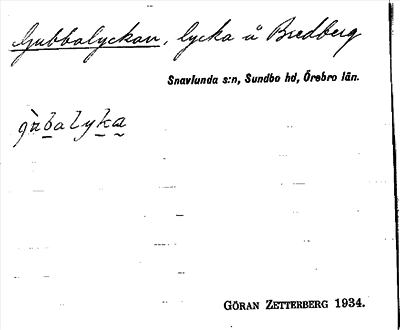 Gubbalyckan, lycka å Bredberg
Snavlunda s:n, Sundbo hd, Örebro län.
gùbalyka
GÖRAN ZETTERBERG 1934.